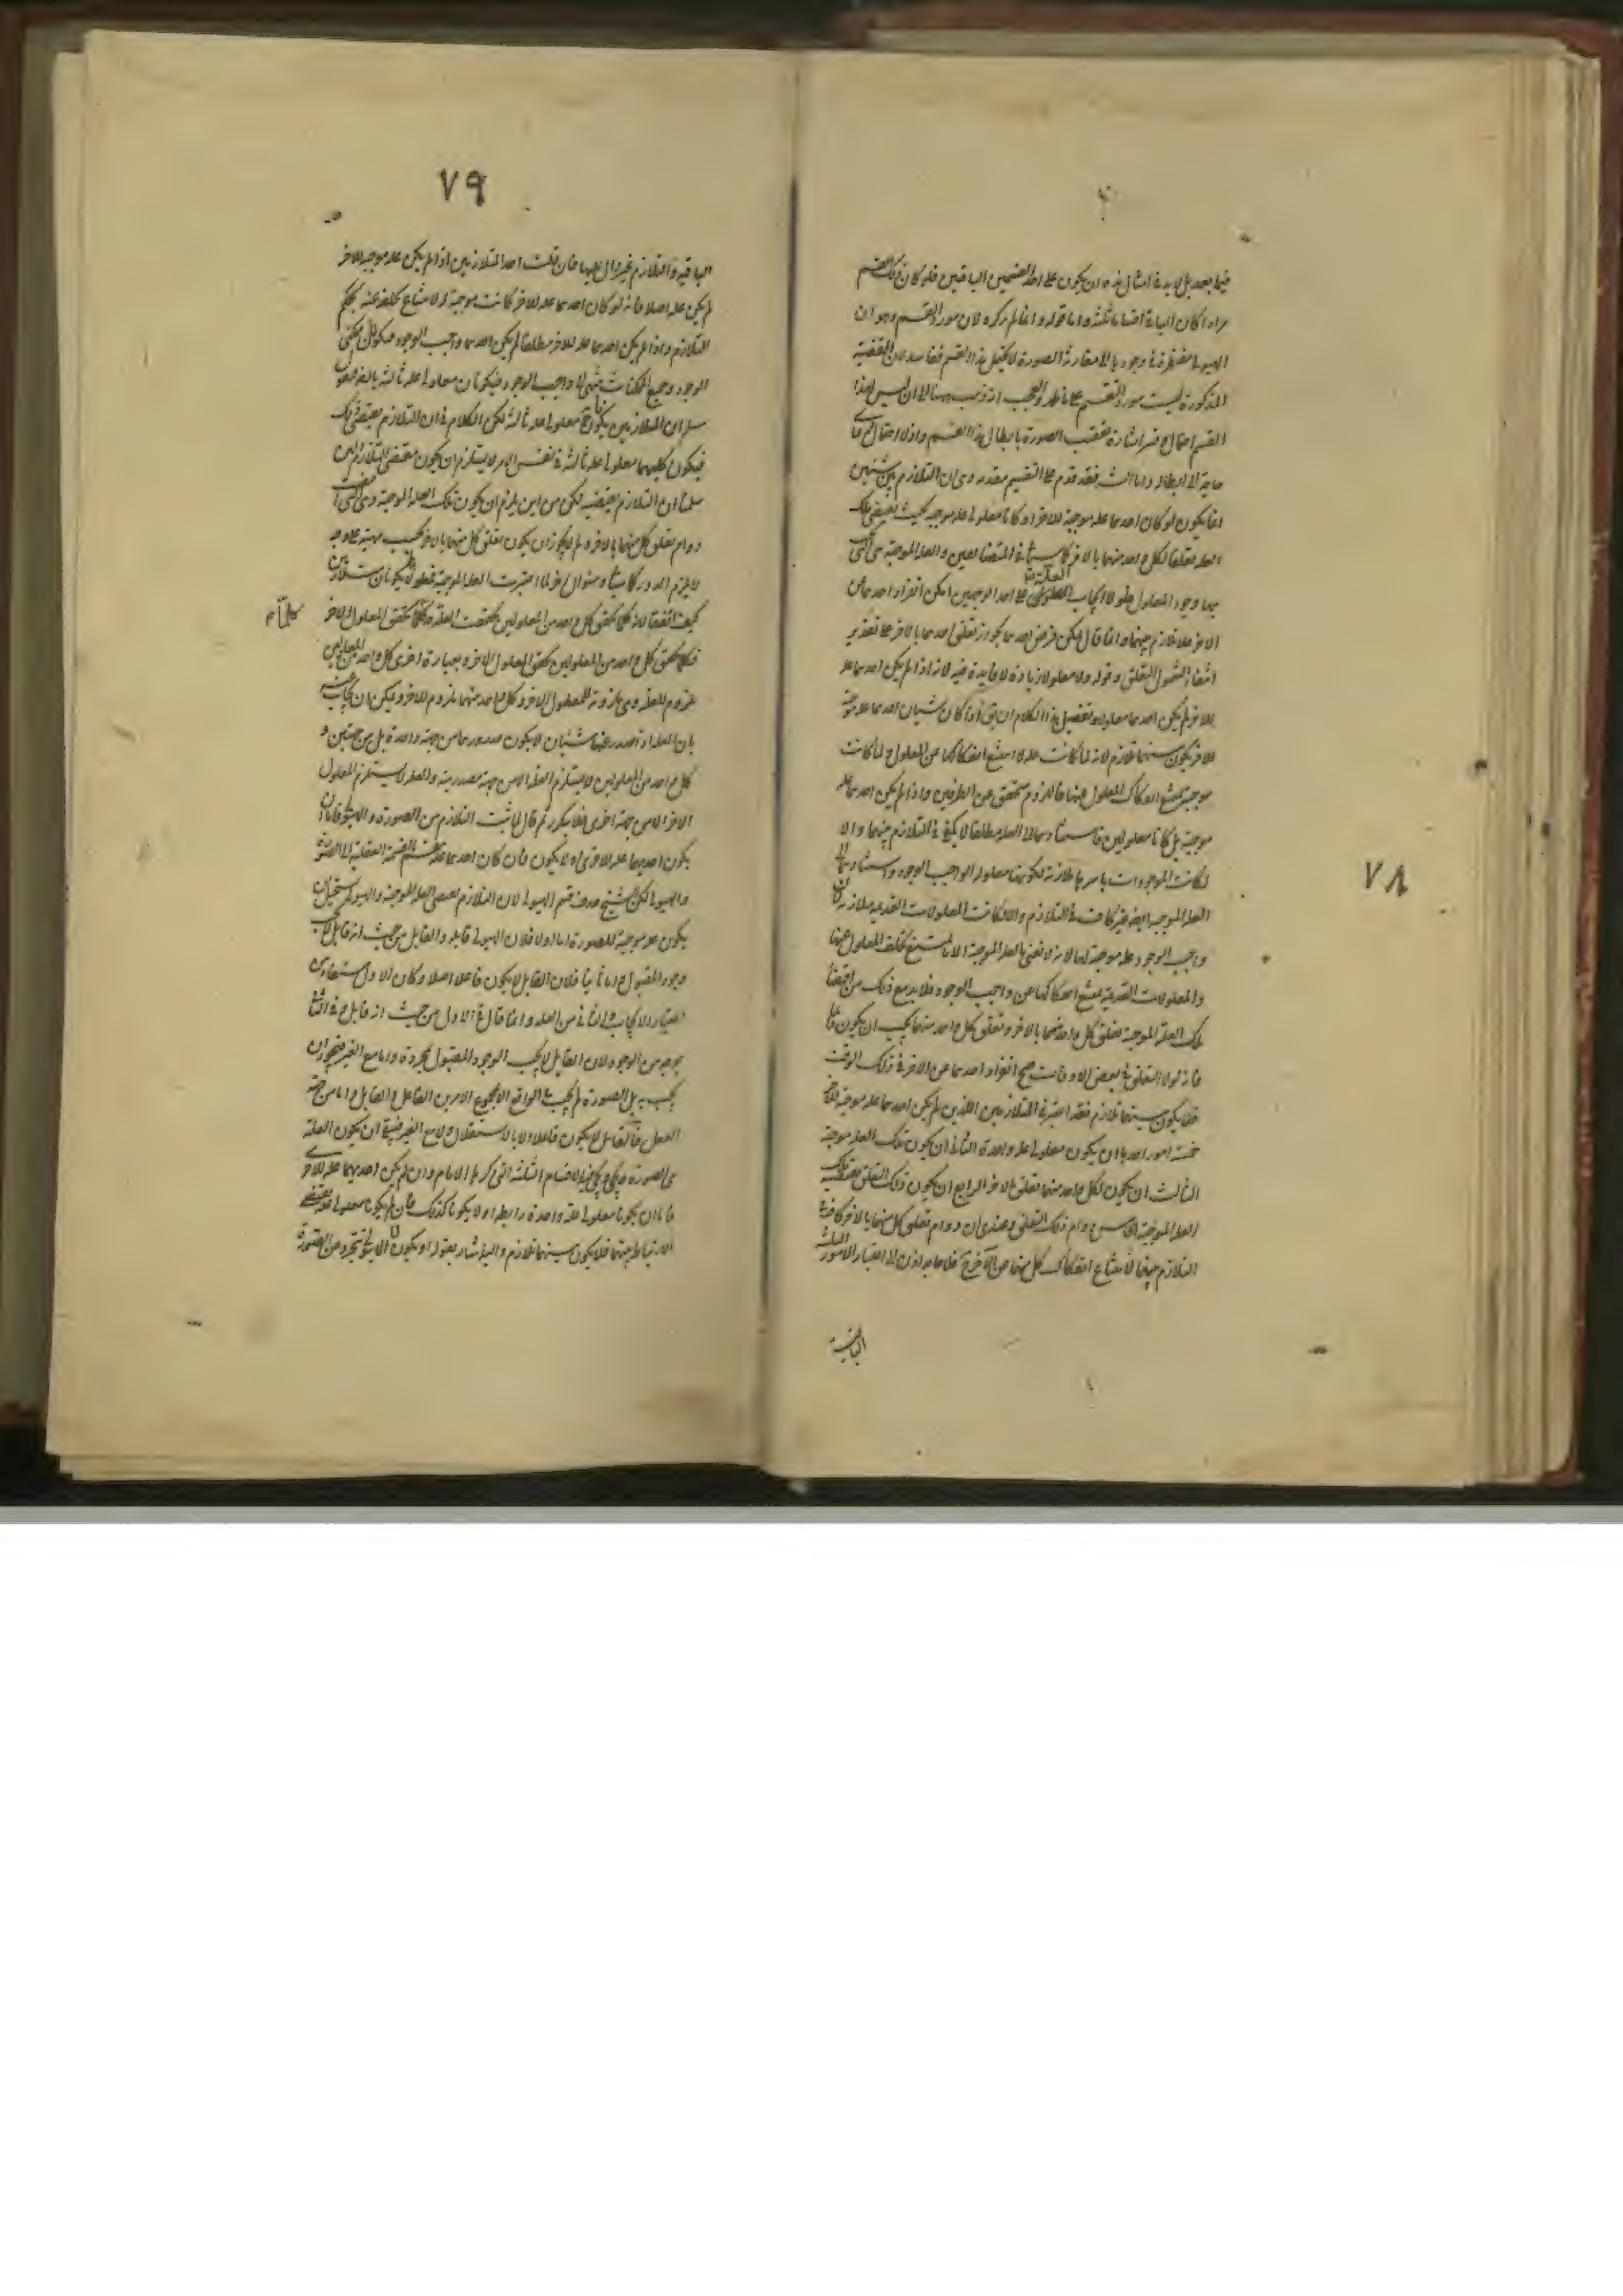 ٧٨
فيما بعد بل لابد في امثال هذه ان يكون على احد القسمين الباقيين فلو كان ذلك القسم
مرادا كان الباقي اقساما ثلثة واما قوله وانما لم يذكره لان مورد القسم وهو ان
الهيولى مفتقرة في وجودها الى مقارنة الصورة لا يحتمل هذا القسم ففاسد لان القضية
المذكورة ليست مورد القسم على ما ظهر والعجب انه ذهب ههنا الى ان ليس لهذا
القسم احتمال
حاجة الى ابطاله واما الشيخ فقد قدم على التقسيم مقدمة وهى ان التلازم بين شيئين
انما يكون لو كان احدهما علة موجبة للاخر او كانا معلولى علة موجبة بحيث يقتضى تلك
العلة تعلقا لكل واحد منهما بالاخر كما في المتضايفين والعلة الموجبة هى التى
بها وجود المعلول فلولا ايجاب العلة على احد الوجهين امكن انفراد احدهما عن
الاخر فلا تلازم بينهما وانما قال يمكن فرض احدهما تعلق احدهما بالاخر على تقدير
انتفاء التعلق وقوله ولا معلولا زيادة لا فايدة فيه لانه اذا لم يكن احدهما علة
للاخر لم يكن احدهما معلولا وتفصيل هذا الكلام ان يق اذا كان شيئان احدهما علة موجبة
للاخر يكون بينهما تلازم لانه لما كانت علة امتنع انفكاكها عن المعلول ولما كانت
موجبة يمتنع انفكاك المعلول عنها فاللزوم متحقق عن الطرفين واذا لم يكن احدهما علة
موجبة بل كانا معلولين فاستنادهما الى العلة مطلقا لا يكفى في التلازم بينهما والا
لكانت الموجودات باسرها متلازمة لكونها معلولة الواجب الوجود واستنادهما الى
العلة الموجبة ايضا غير كاف في التلازم والا لكانت المعلولات القديمة متلازمة لان
واجب الوجود علة موجبة لها لانه لا نعنى بالعلة الموجبة الا ما يمتنع تخلف المعلول عنها
والمعلولات القديمة يمتنع انفكاكها عن واجب الوجود فلابد مع ذلك من اقتضاء
تلك العلة الموجبة تعلق كل واحد منهما بالاخر وتعلق كل واحد منهما يجب ان يكون دائما
فانه لولا التعلق في بعض الاوقات صح انفراد احدهما عن الاخر في ذلك الوقت
فلا يكون بينهما تلازم فقد اعتبر في المتلازمين اللذين لم يكن احدهما علة موجبة للاخر
خمسة امور احدها ان يكون معلولى علة واحدة الثانى ان يكون تلك العلة موجبة
الثالث ان يكون لكل واحد منهما تعلق بالاخر الرابع ان يكون ذلك التعلق مقتضى تلك
العلة الموجبة الخامس دوام ذلك التعلق وعندى ان دوام تعلق كل منهما بالاخر كاف في
التلازم بينهما لامتناع انفكاك كل منهما عن الآخر ح فلا حاجة اذن الى اعتبار الامور الثلثة
الباقية
٧٩
الباقية والتلازم غير دال عليها فان قلت احد المتلازمين اذا لم يكن علة موجبة للاخر
لم يكن علة اصلا فانه لو كان احدهما علة للاخر كانت موجبة له لامتناع تخلفه عنه بحكم
التلازم واذا لم يكن احدهما علة للاخر مطلقا لم يكن احدهما واجب الوجود فيكونان ممكنى
الوجود وجميع الممكنات تنتهى الى واجب الوجود فيكونان معلولى علة ثالثة بالضرورة فنقول
سلم ان المتلازمين يكونان ح معلولى علة ثالثة لكن الكلام في ان التلازم يقتضى ذلك
فيكون كليهما معلولى علة ثالثة في نفس الامر لا يستلزم ان يكون مقتضى التلازم
سلمنا ان التلازم يقتضيه لكن من اين يلزم ان يكون تلك العلة الموجبة هى التى
دوام تعلق كل منهما بالاخر ولم لا يجوز ان يكون تعلق كل منهما بالاخر بحسب مهيته على وجه
لا يلزم الدور كما وسؤال اخر لما اعتبرت العلة الموجبة فمعلولاها يكونان متلازمين
كيف اتفقا لانه كلما تحقق كل واحد من المعلولين تحققت العلة وكلما تحقق المعلول الاخر
فكلما تحقق كل واحد من المعلولين تحقق المعلول الاخر وبعبارة اخرى كل واحد من المعلولين
ملزوم للعلة وهى ملزومة للمعلول الاخر وكل واحد منهما ملزوم للاخر ويمكن ان يجاب عنه
بان العلة اذا صدر عنها شيئان لا يكون صدورهما من جهة واحدة بل من جهتين و
كل واحد من المعلولين لا يستلزم العلة الا من جهة مصدريته والعلة لا يستلزم المعلول
الاخر الا من جهة اخرى فلا يتكرر ثم قال لما ثبت التلازم بين الصورة والهيولى فاما ان
يكون احديهما علة للاخرى او لا يكون فان كان احدهما علة القسمة العقلية الى الصورة
والهيولى لكن الشيخ حذف قسم الهيولى لان التلازم يقتضى العلة الموجبة والهيولى يستحيل ان
يكون علة موجبة للصورة اما اولا فلان الهيولى قابلة والقابل من حيث انه قابل لا يجب
وجود المقبول واما ثانيا فلان القابل لا يكون فاعلا اصلا وكان الاول مستفاد من
اعتبار الايجاب والثانى من العلة وانما قال في الاول من حيث انه قابل وفي الثانى
بوجه من الوجوه لان القابل لا يجب الوجود المقبول بمجرده واما مع الغير فيجوز ان
يجب به بل الصورة لم يجب في الواقع الا بمجموع الامرين الفاعل والقابل واما من جهة
الفعل فالقابل لا يكون فاعلا ولا بالاستقلال ولا مع الغير فبقى ان يكون العلة
هى الصورة وان لم يكن احديهما علة للاخرى
فاما ان يكونا معلولى علة واحدة رابطة او لا يكونا كذلك فان لم يكونا معلولى
الارتباط بينهما فلا يكون بينهما تلازم واليه اشار بقوله او يكون لا الهيولى تتجرد عن الصورة